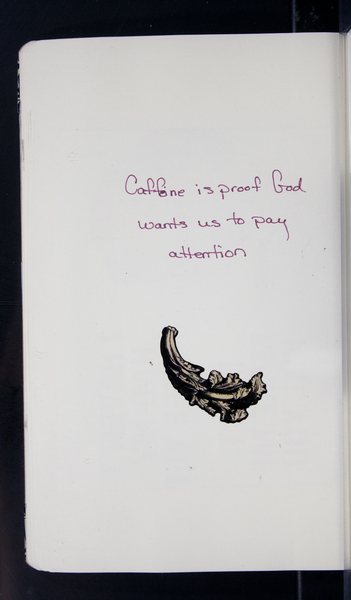 Caffeine is proof God
wants us to pay
attention